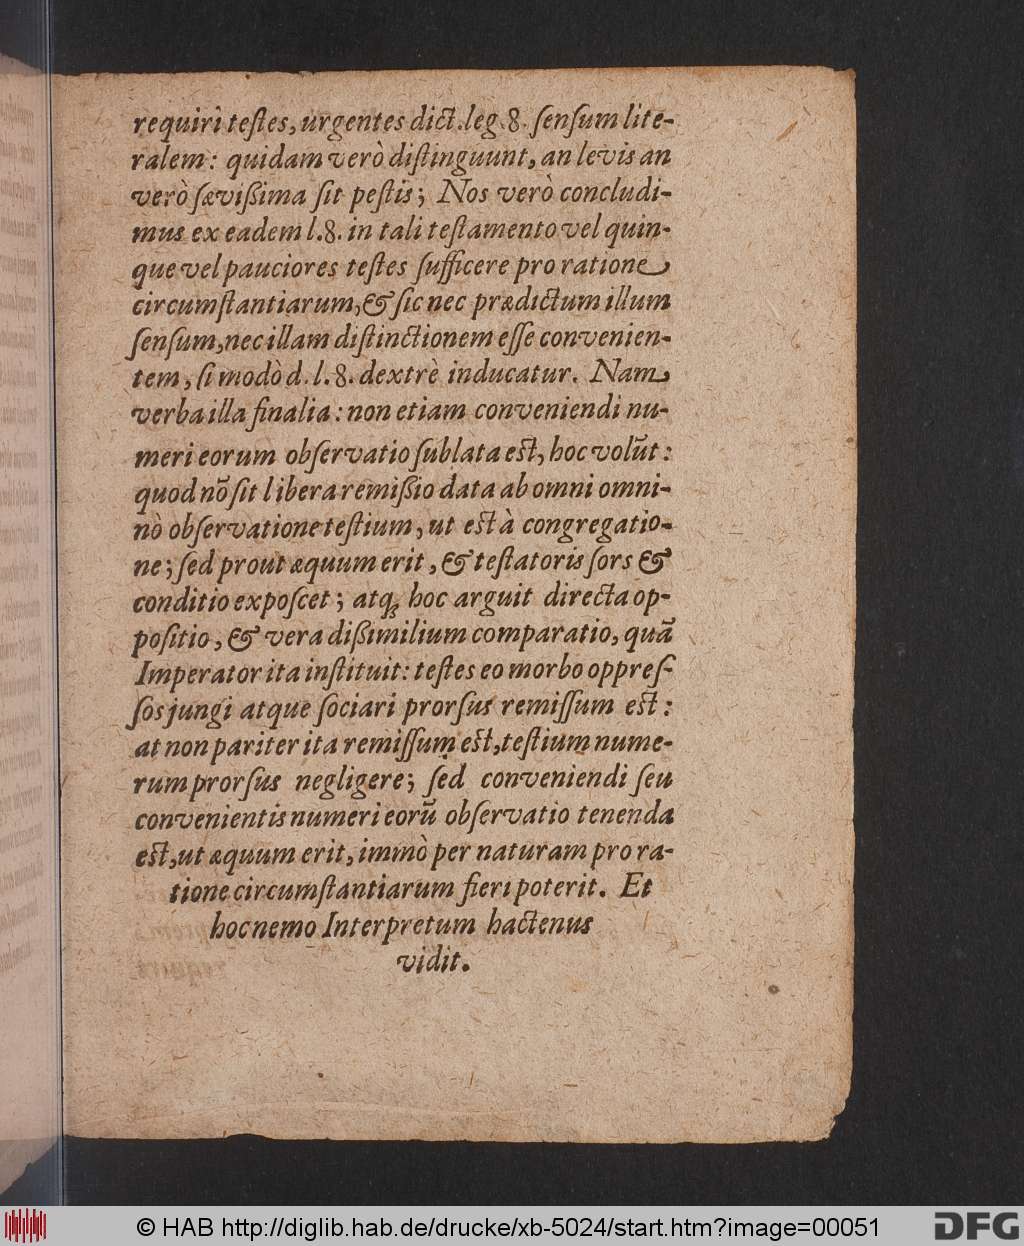 requiri testes, urgentes dict. leg. 8. sensum lite-
ralem: quidam verò distinguunt, an levis an
verò sævißima sit pestis; Nos verò concludi-
mus ex eadem l. 8. in tali testamento vel quin-
que vel pauciores testes sufficere pro ratione
circumstantiarum, & sic nec prædictum illum
sensum, nec illam distinctionem esse convenien-
tem, si modò d. l. 8. dextrè inducatur. Nam
verba illa finalia: non etiam conveniendi nu-
meri eorum observatio sublata est, hoc volūt:
quod nō sit libera remißio data ab omni omni-
nò observatione testium, ut est à congregatio-
ne; sed prout æquum erit, & testatoris sors &
conditio exposcet; atq; hoc arguit directa op-
positio, & vera dißimilium comparatio, quā
Imperator ita instituit: testes eo morbo oppres-
sos jungi atque sociari prorsus remissum est:
at non pariter ita remissum est, testium nume-
rum prorsus negligere; sed conveniendi seu
convenientis numeri eorū observatio tenenda
est, ut æquum erit, immò per naturam pro ra-
tione circumstantiarum fieri poterit. Et
hoc nemo Interpretum hactenus
vidit.
© HAB http://diglib.hab.de/drucke/xb-5024/start.htm?image=00051
DFG